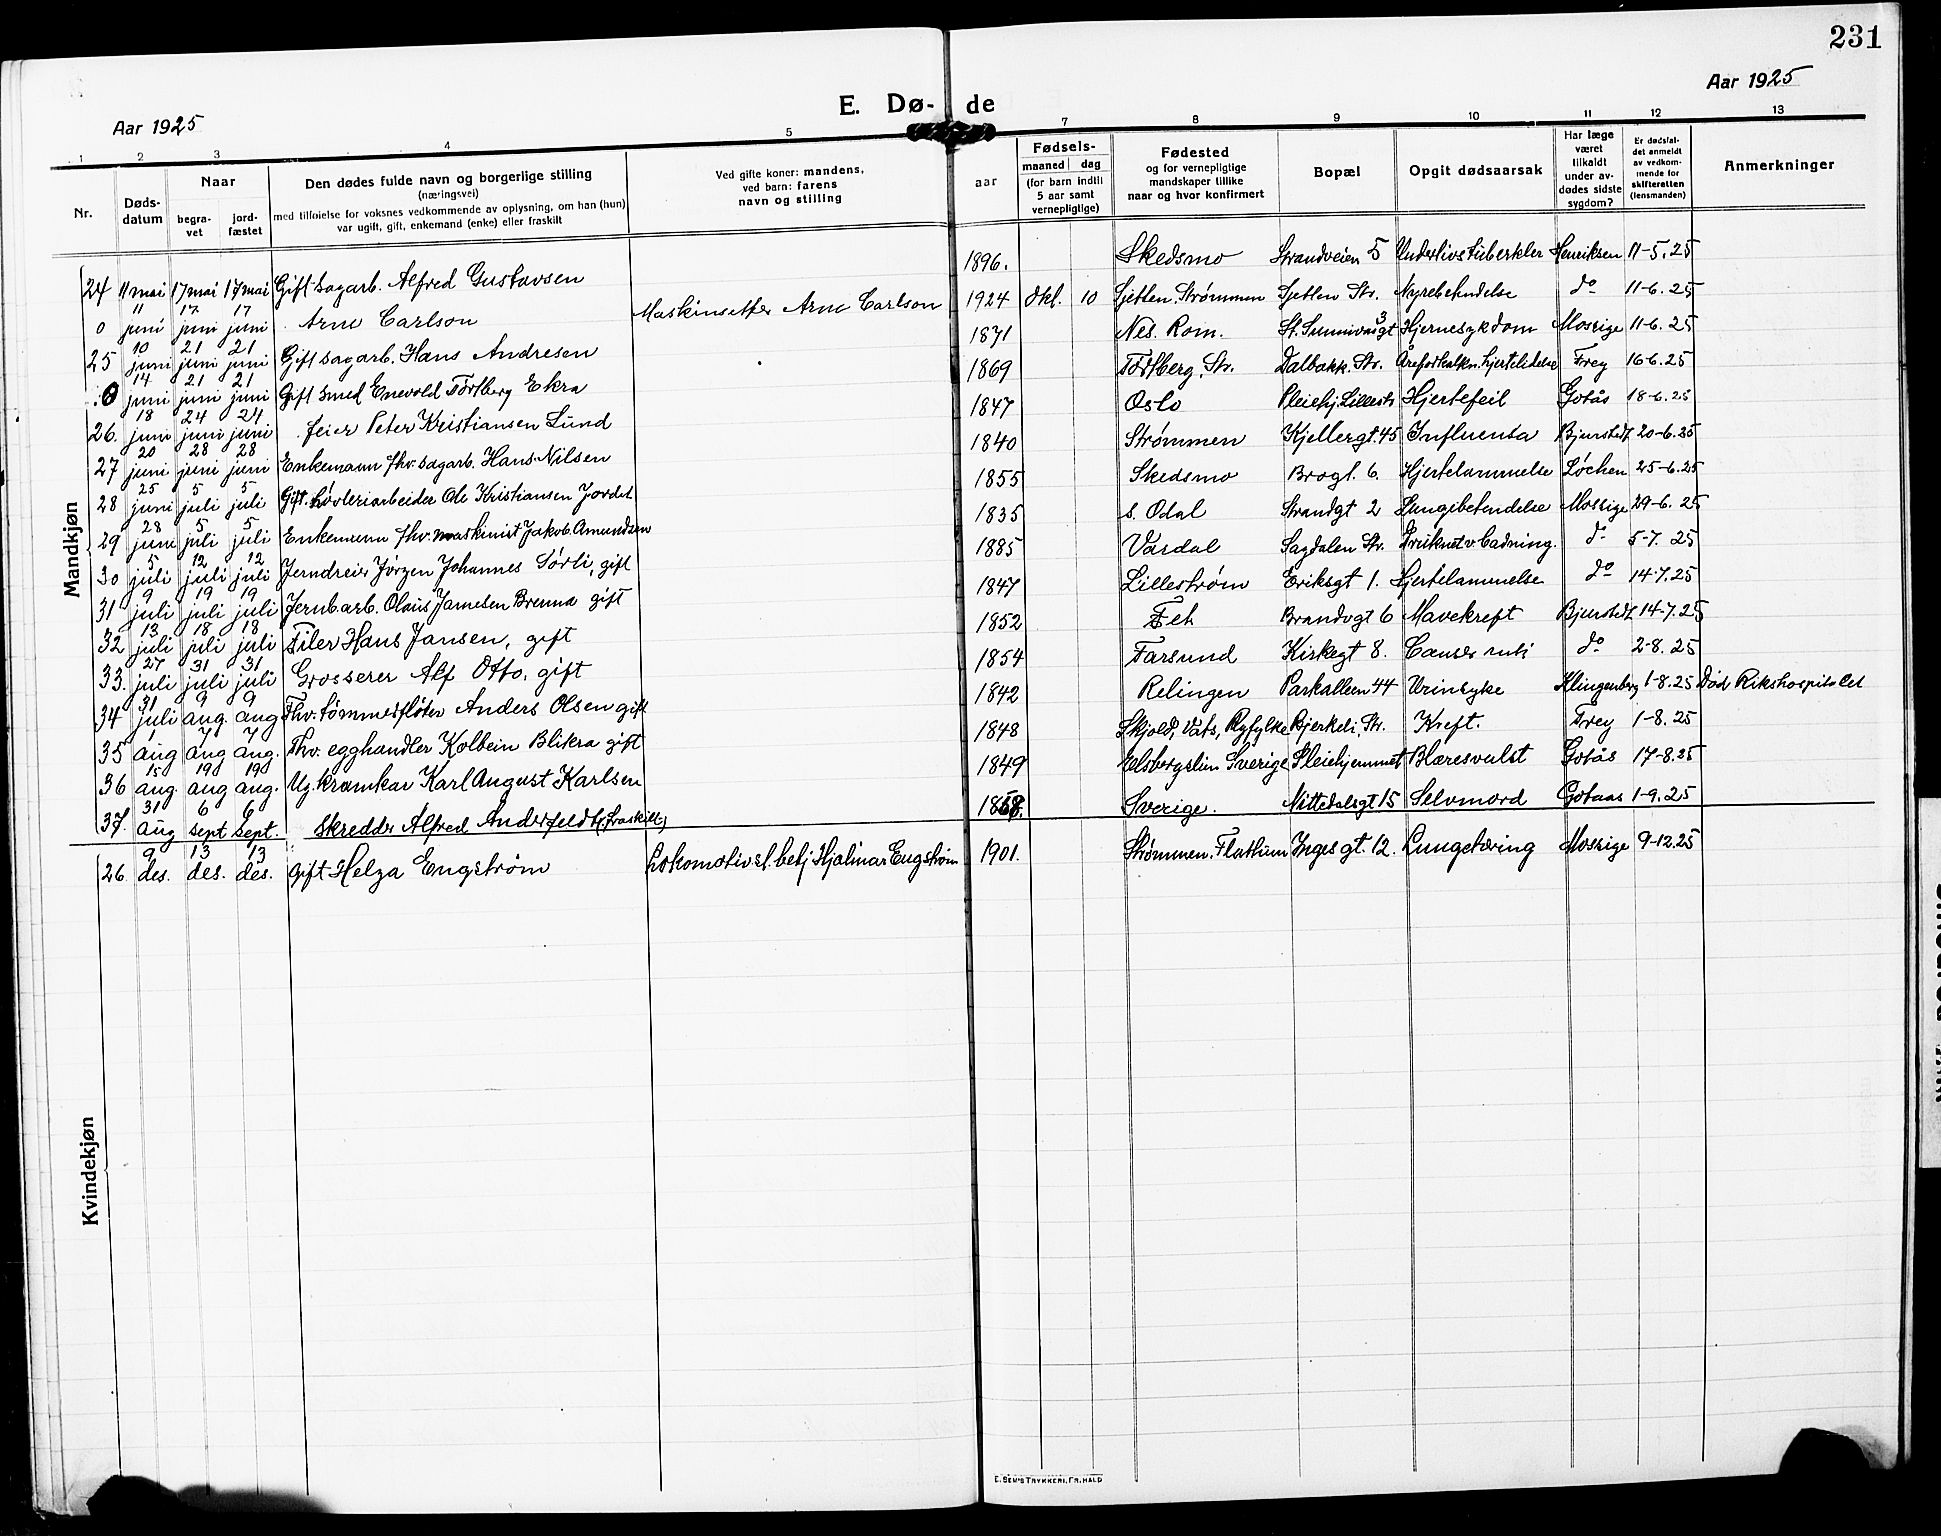 231
Aar 1925
Aar 1925
E. Dø- de
1 2 3 4 5 7 8 9 10 11 12 13
Nr.
Døds-datum
Naar
begra-vet
jord-fæstet
Den dødes fulde navn og borgerlige stilling
(næringsvei)
med tilføielse for voksnes vedkommende av oplysning, om han (hun)
var ugift, gift, enkemand (enke) eller fraskilt
Ved gifte koner: mandens,
ved barn: farens
navn og stilling
aar
Fødsels-
maaned dag
(for barn indtil
5 aar samt
vernepligtige)
Fødested
og for vernepligtige
mandskaper tillike
naar og hvor konfirmert
Bopæl
Opgit dødsaarsak
Har læge
været
tilkaldt
under av-
dødes sidste
sygdom?
Er dødsfal-
det anmeldt
av vedkom-
mende for
skifteretten
(lensmanden)
Anmerkninger
Mandkjøn
24 11 mai 17 mai 17 mai Gift sagarb. Alfred Gustavsen 1896. Skedsmo Strandveien 5 Underlivstuberkler Henriksen 11-5.25
0 11 juni 17 juni 17 juni Arne Carlson Maskinsetter Arne Carlson 1924 okt. 10 Sjetten, Strømmen Sjetten Str. Nyrebetendelse do 11-6.25
25 10 juni 21 juni 21 juni Gift sagarb. Hans Andresen 1871 Nes. Rom. St. Sunnivasgt 3 Hjernesykdom Mossige 11-6.25
0 14 juni 21 juni 21 juni Gift smed Enevold Torsberg Ekra 1869 Torsberg, Str. Dalbakk. Str. Åreforkalkn. hjertelidelse Frey 16-6.25
26. 18 juni 24 juni 24 juni feier Peter Kristiansen Lund 1847 Oslo Pleiehj. Lillestr. Hjertefeil Gotås 18-6.25
27 20 juni 28 juni 28 juni Enkemann fhv. sagarb. Hans Nilsen 1840 Strømmen Kjellergt. 45 Influensa Bjurstedt 20-6.25
28 25 juni 5 juli 5 juli Gift. høvleriarbeider Ole Kristiansen Jordet 1855 Skedsmo Brogt. 6. Hjertelammelse Løchen 25-6.25
29 28 juni 5 juli 5 juli Enkemann fhv. maskinist Jakob Amundsen 1835 S. Odal Strandgt 2 Lungebetendelse Mossige 29-6.25
30 5 juli 12 juli 12 juli Jerndreier Jörgen Johannes Sörli, gift 1885 Vardal Sagdalen Str. Druknet v badning. do 5-7.25
31 9 juli 19 juli 19 juli Jernbarb. Olaus Jamesen Brenna gift 1847 Lillestrøm Eriksgt 1. Hjertelammelse do 14.7.25
32 13 juli 18 juli 18 juli Filer Hans Jansen, gift 1852 Fet Brandvgt 6 Mavekreft Bjurstedt 14-7.25
33. 27 juli 31 juli 31 juli Grosserer Alf Otto, gift 1854 Farsund Kirkegt 8. Cancer do 2-8.25
34 31 juli 9 aug. 9 aug Fhv. tømmerfløter Anders Olsen gift 1842 Relingen Parkalleen 44 Urinsyke Klingenberg 1-8.25 Død Rikshospitalet
35 1 aug 7 aug 7 aug. Fhv. egghandler Kolbein Blikra gift 1848 Skjold, Vats, Ryfylke Bjerkeli, Str. Kreft. Frey 1-8.25
36 15 aug. 19 aug 19 aug. Ug. kramkar Karl August Karlsen 1849 Sverige Pleiehjemmet Blæresvulst Gotås 17-8.25
37. 31 aug 6 sept 6 sept. Skredder Alfred Anderfeldt (fraskilt) 1868. Sverige. Nittedalsgt 15 Selvmord Gotaas 1-9.25
Kvindekjøn
26. 9 des. 13 des. 13 des. gift Helga Engström Lokomotivst. betj. Hjalmar Engström 1901. Strømmen, Flathum Ingesgt. 12. Lungetæring Mossige 9-12.25
E. SEM'S TRYKKERI, FR.HALD